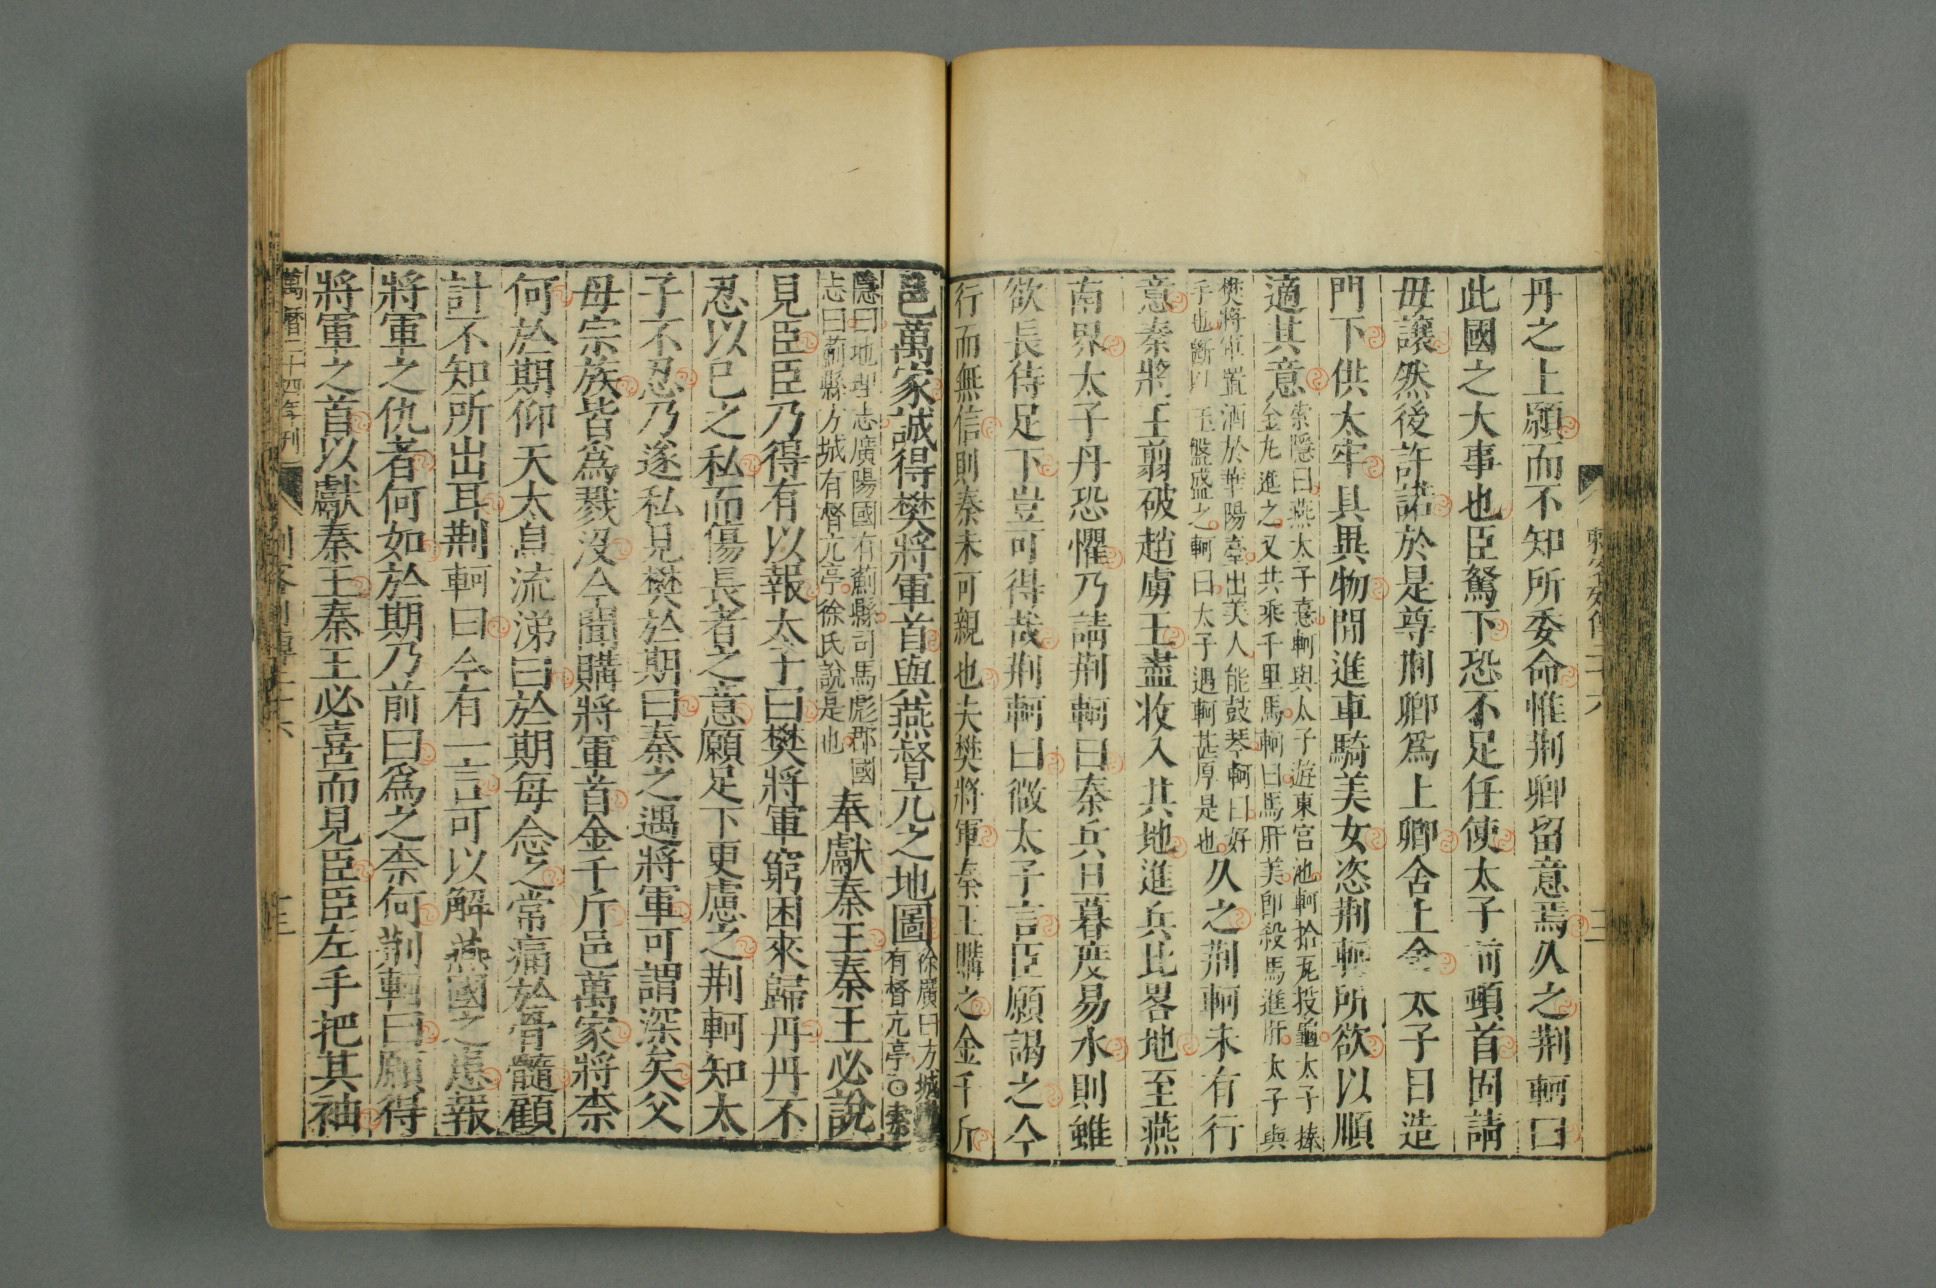 丹之上願而不知所委命惟荆卿留意焉久之荆軻曰
此國之大事也臣駑下恐不足任使太子前頓首固請
毋讓然後許諾於是尊荆卿爲上卿舍上舍太子日造
門下供太牢具異物間進車騎美女恣荆軻所欲以順
適其意
索隱曰燕太子憙軻與太子遊東宮池軻拾瓦投龜太子捧
金丸進之又共乘千里馬軻曰馬肝美卽殺馬進肝太子與
樊將軍置酒於華陽臺出美人能鼓琴軻曰好
手也斷以玉盤盛之軻曰太子遇軻甚厚是也
久之荆軻未有行
意秦將王翦破趙虜王盡收入其地進兵北畧地至燕
南界太子丹恐懼乃請荆軻曰秦兵旦暮度易水則雖
欲長侍足下豈可得哉荆軻曰微太子言臣願謁之今
行而無信則秦未可親也夫樊將軍秦王購之金千斤
邑萬家誠得樊將軍首與燕督亢之地圖
徐廣曰方城
有督亢亭○索
隱曰地理志廣陽國有薊縣司馬彪郡國
志曰薊縣方城有督亢亭徐氏說是也
奉獻秦王秦王必說
見臣臣乃得有以報太子曰樊將軍窮困來歸丹丹不
忍以已之私而傷長者之意願足下更慮之荆軻知太
子不忍乃遂私見樊於期曰秦之遇將軍可謂深矣父
母宗族皆爲戮沒今聞購將軍首金千斤邑萬家將柰
何於期仰天太息流涕曰於期每念之常痛於骨髓顧
計不知所出耳荆軻曰今有一言可以解燕國之患報
將軍之仇者何如於期乃前曰爲之柰何荆軻曰願得
將軍之首以獻秦王秦王必喜而見臣臣左手把其袖
萬曆二十四年刊
刺客列傳二十六